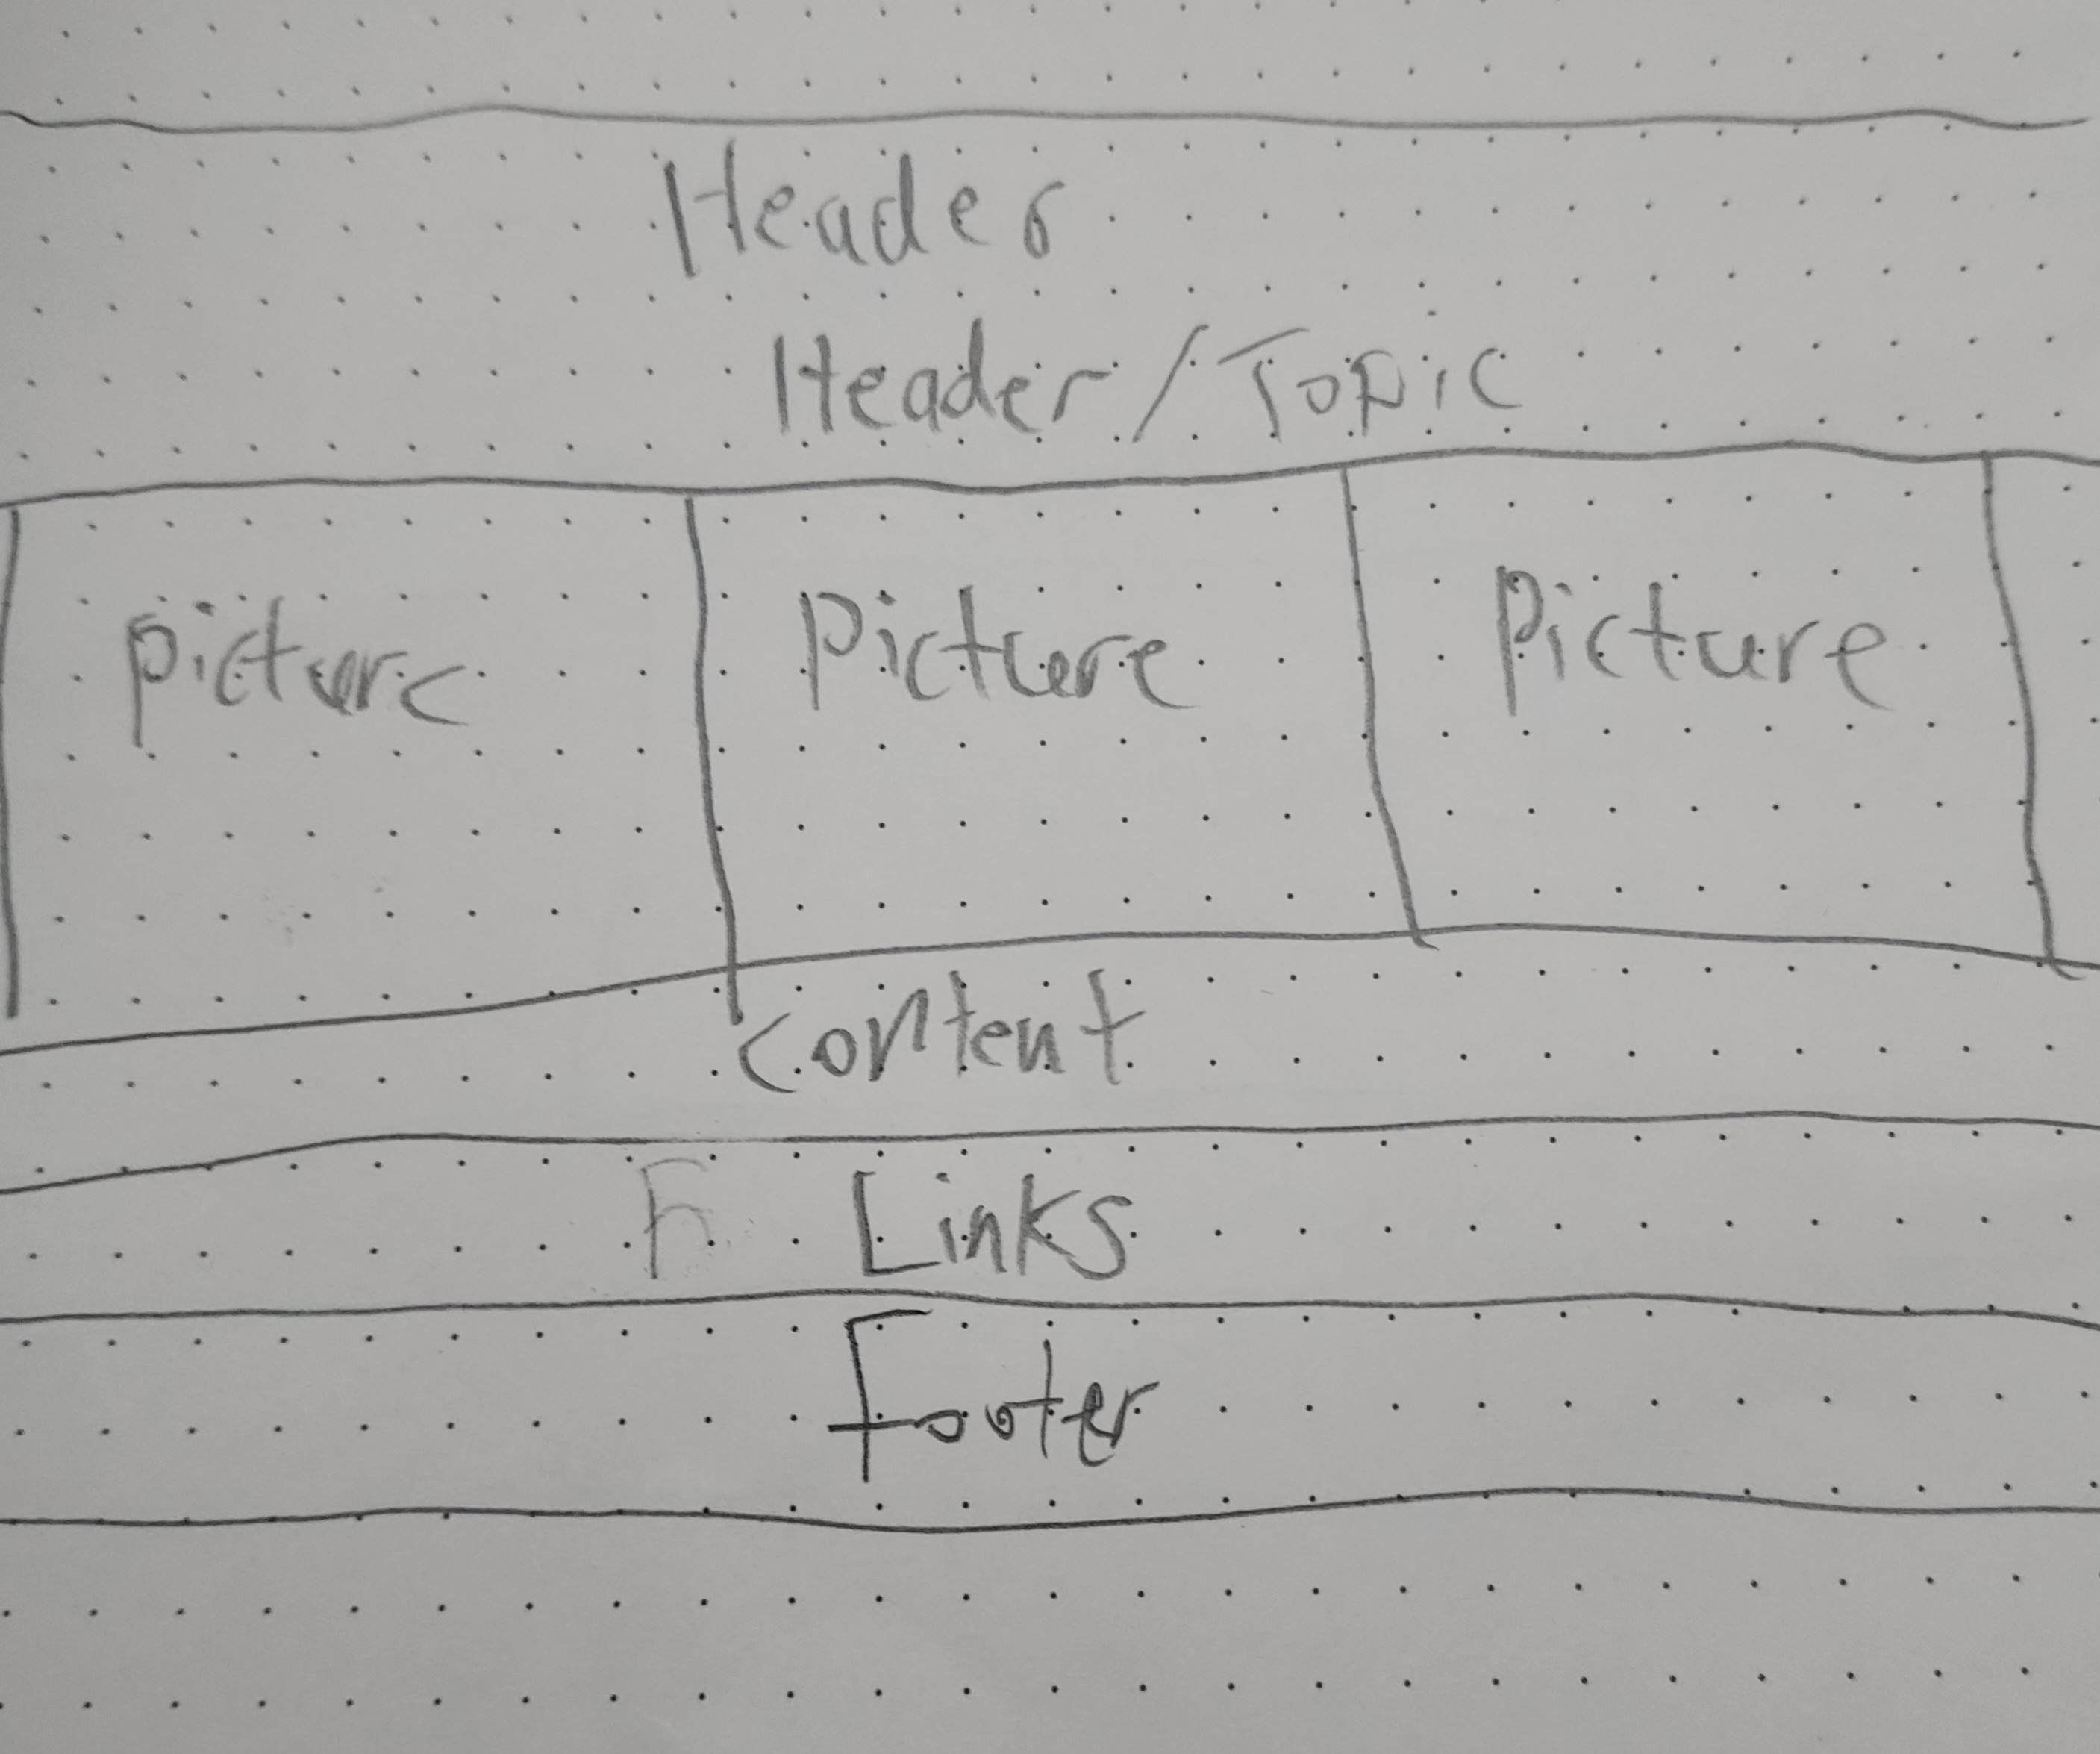 Header
Header/Topic
picture Picture Picture
content
Links
Footer